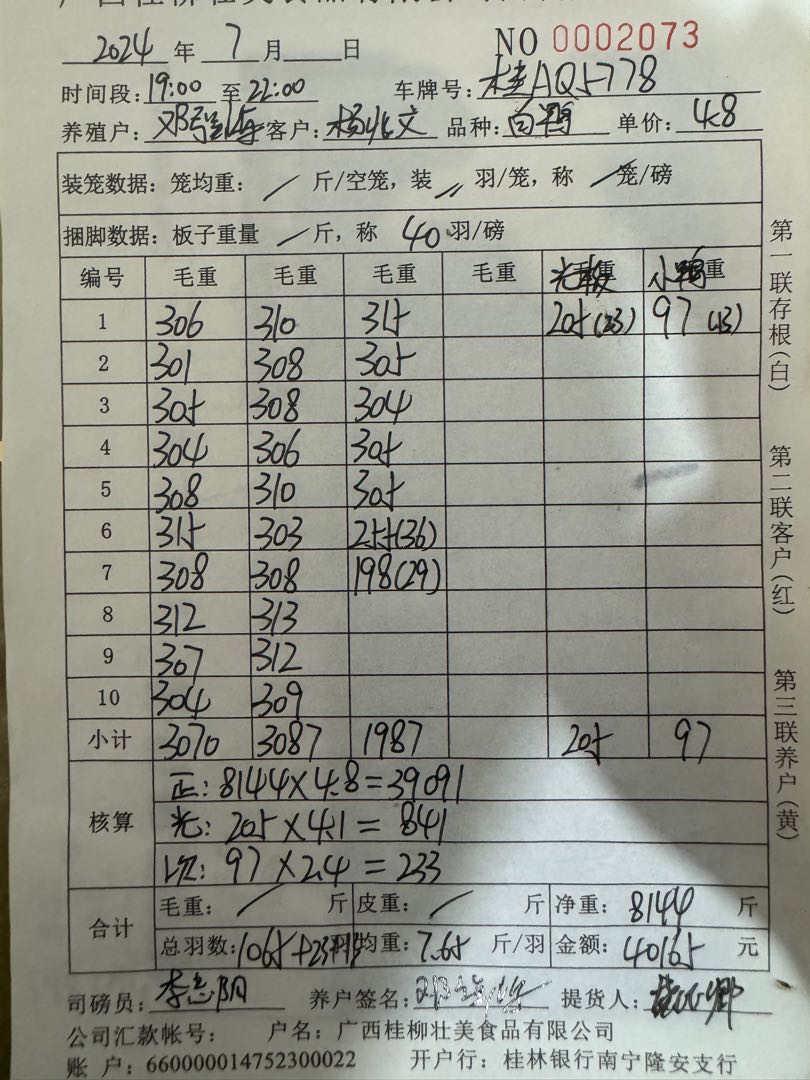 2024 年 7 月 日 NO 0002073
时间段: 19:00 至 22:00 车牌号: 桂AQ5778
养殖户: 邓 客户: 杨兆文 品种: 白鸭 单价: 4.8
装笼数据: 笼均重: / 斤/空笼, 装 / 羽/笼, 称 / 笼/磅
捆脚数据: 板子重量 / 斤, 称 40 羽/磅
编号 毛重 毛重 毛重 毛重 光 重 小鸭 重
1 306 310 315 205(23) 97(13)
2 301 308 305
3 305 308 304
4 304 306 305
5 308 310 305
6 315 303 255(36)
7 308 308 198(29)
8 312 313
9 307 312
10 304 309
小计 3070 3087 1987 205 97
核算 正: 8144×4.8=39091
光: 205×4.1=841
次: 97×2.4=233
合计 毛重: / 斤 皮重: / 斤 净重: 8144 斤
总羽数: 1065+23+13 均重: 7.65 斤/羽 金额: 40165 元
司磅员: 李志阴 养户签名: 提货人:
公司汇款帐号: 户名: 广西桂柳壮美食品有限公司
账 户: 660000014752300022 开户行: 桂林银行南宁隆安支行
第一联存根(白)
第二联客户(红)
第三联养户(黄)